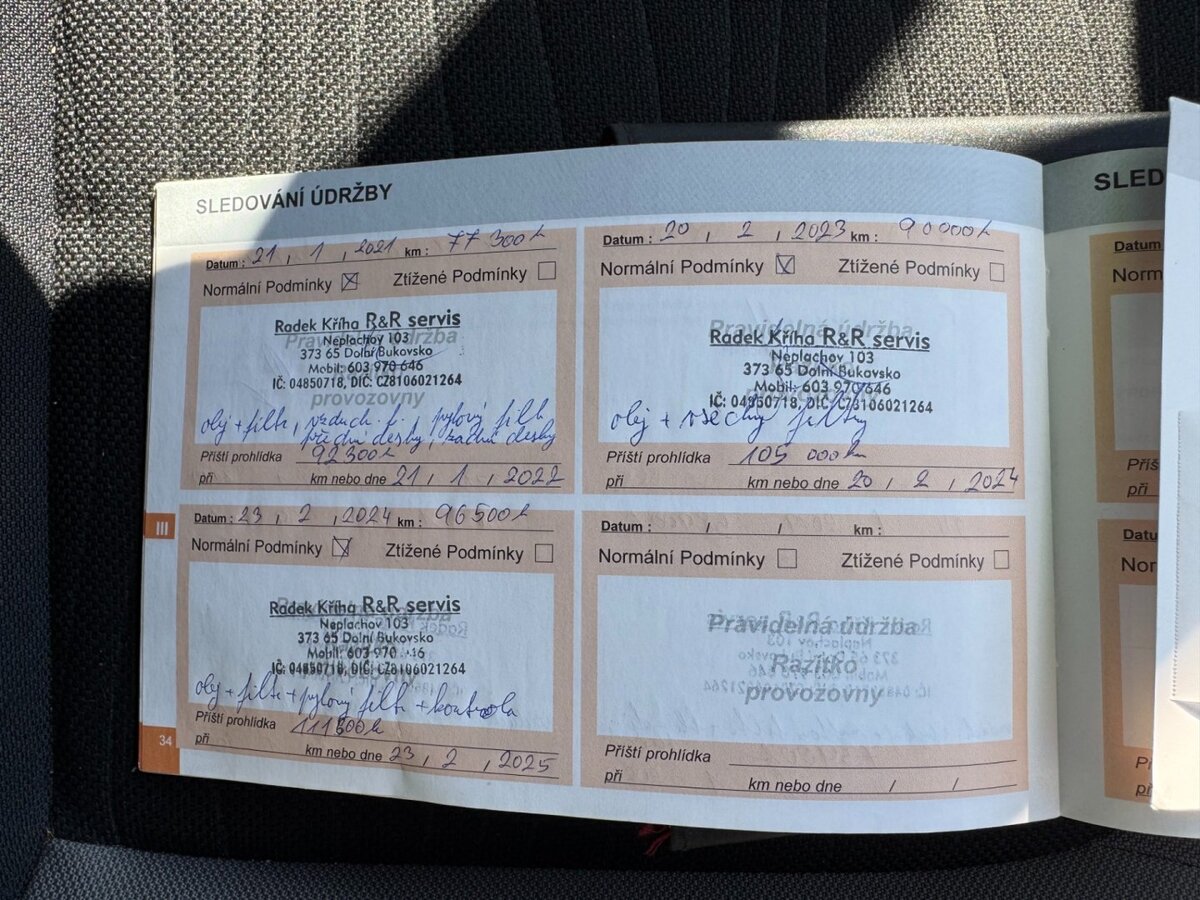 SLEDOVÁNÍ ÚDRŽBY
Datum : 21 , 1 , 2021 km : 77 300k
Normální Podmínky Ztížené Podmínky
Pravidelná údržba
provozovny
Radek Kříha R&R servis
Neplachov 103
373 65 Dolní Bukovsko
Mobil: 603 970 646
IČ: 04850718, DIČ: CZ8106021264
olej + filtr, vzduch. f. pylový filtr
přední desky, zadní desky
Příští prohlídka 92300k
při km nebo dne 21 , 1 , 2022
Datum : 20 , 2 , 2023 km : 90000k
Normální Podmínky Ztížené Podmínky
Pravidelná údržba
Radek Kříha R&R servis
Neplachov 103
373 65 Dolní Bukovsko
Mobil: 603 970 646
IČ: 04850718, DIČ: CZ8106021264
olej + všechy filtry
Příští prohlídka 105 000km
při km nebo dne 20 , 2 , 2024
III
Datum : 23 , 2 , 2024 km : 96500k
Normální Podmínky Ztížené Podmínky
Radek Kříha R&R servis
Neplachov 103
373 65 Dolní Bukovsko
Mobil: 603 970 46
IČ: 04850718, DIČ: CZ8106021264
olej + filtr + pylový filtr + kontrola
Příští prohlídka 111500k
při km nebo dne 23 , 2 , 2025
Datum : / / km :
Normální Podmínky Ztížené Podmínky
Pravidelná údržba
Razítko
provozovny
Příští prohlídka
při km nebo dne / /
34
SLED
Datum
Norm
Příš
při
Datu
Nor
Př
při